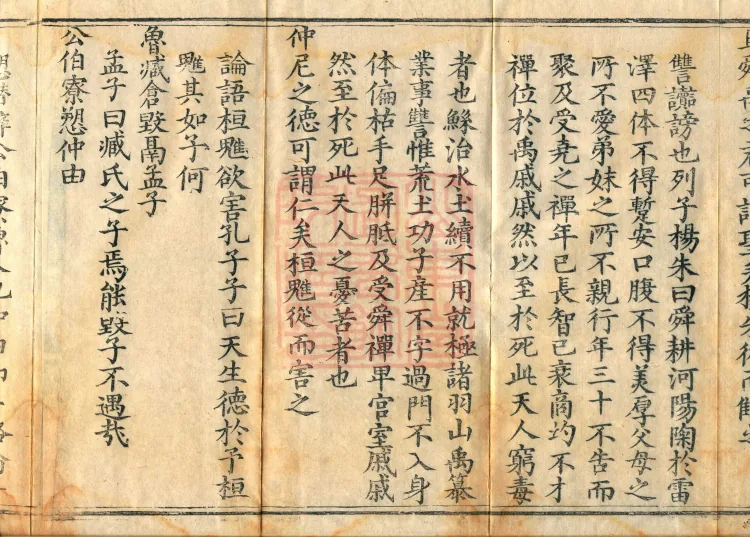 讐讟謗也列子楊朱曰舜耕河陽陶於雷
澤四体不得蹔安口腹不得美厚父母之
所不愛弟妹之所不親行年三十不告而
聚及受堯之禪年已長智已衰商均不才
禪位於禹戚戚然以至於死此天人窮毒
者也鯀治水土續不用就極諸羽山禹纂
業事讐惟荒土功子產不字過門不入身
体偏枯手足胼胝及受舜禪卑宮室戚戚
然至於死此天人之憂苦者也
仲尼之德可謂仁矣桓魋從而害之
論語桓魋欲害孔子子曰天生德於予桓
魋其如子何
魯臧倉毀鬲孟子
孟子曰臧氏之子焉能毀子不遇哉
公伯寮愬仲由